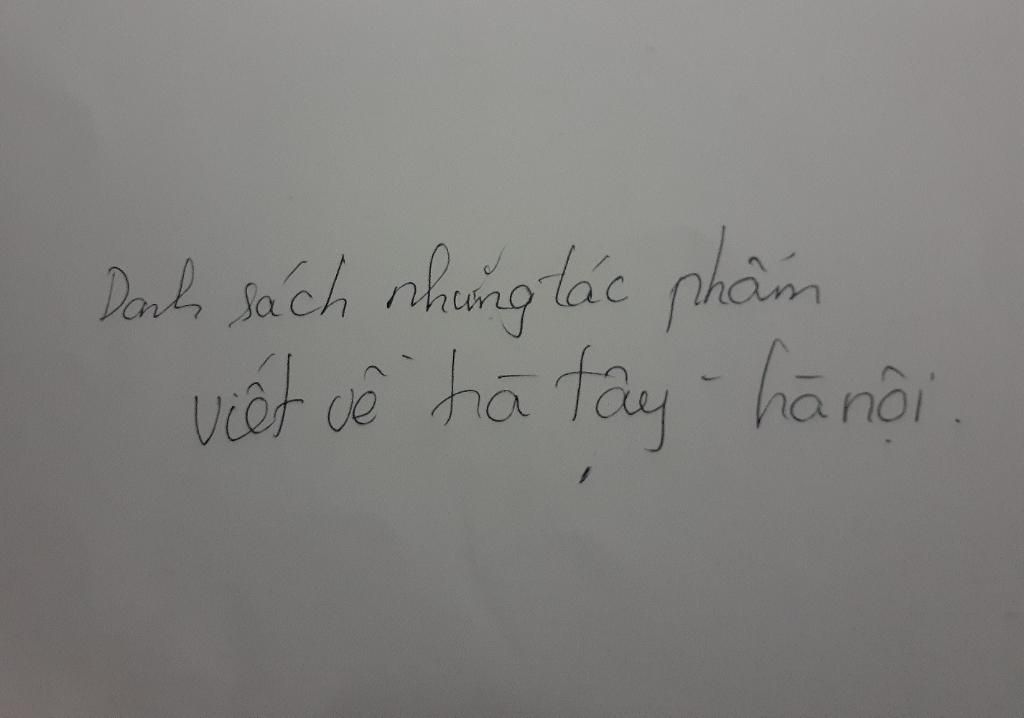 Danh sách những tác phẩm
viết về hà tây - hà nội.